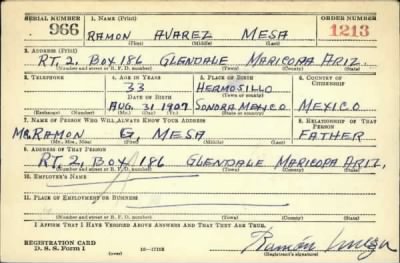 SERIAL NUMBER 1. NAME (Print) ORDER NUMBER
966 RAMON AVAREZ MESA 1213
(First) (Middle) (Last)
2. ADDRESS (Print)
RT. 2. BOX 186 GLENDALE MARICOPA ARIZ.
(Number and street or R. F. D. number) (Town) (County) (State)
3. TELEPHONE 4. AGE IN YEARS 5. PLACE OF BIRTH 6. COUNTRY OF CITIZENSHIP
33 HERMOSILLO
DATE OF BIRTH (Town or county)
AUG. 31 1907 SONORA MEXICO MEXICO
(Exchange) (Number) (Mo.) (Day) (Yr.) (State or country)
7. NAME OF PERSON WHO WILL ALWAYS KNOW YOUR ADDRESS 8. RELATIONSHIP OF THAT PERSON
MR. RAMON G. MESA FATHER
(Mr., Mrs., Miss) (First) (Middle) (Last)
9. ADDRESS OF THAT PERSON
RT. 2, BOX 186 GLENDALE MARICOPA ARIZ.
(Number and street or R. F. D. number) (Town) (County) (State)
10. EMPLOYER'S NAME
11. PLACE OF EMPLOYMENT OR BUSINESS
(Number and street or R. F. D. number) (Town) (County) (State)
I AFFIRM THAT I HAVE VERIFIED ABOVE ANSWERS AND THAT THEY ARE TRUE.
REGISTRATION CARD
D. S. S. Form 1 Ramón
(Registrant's signature)